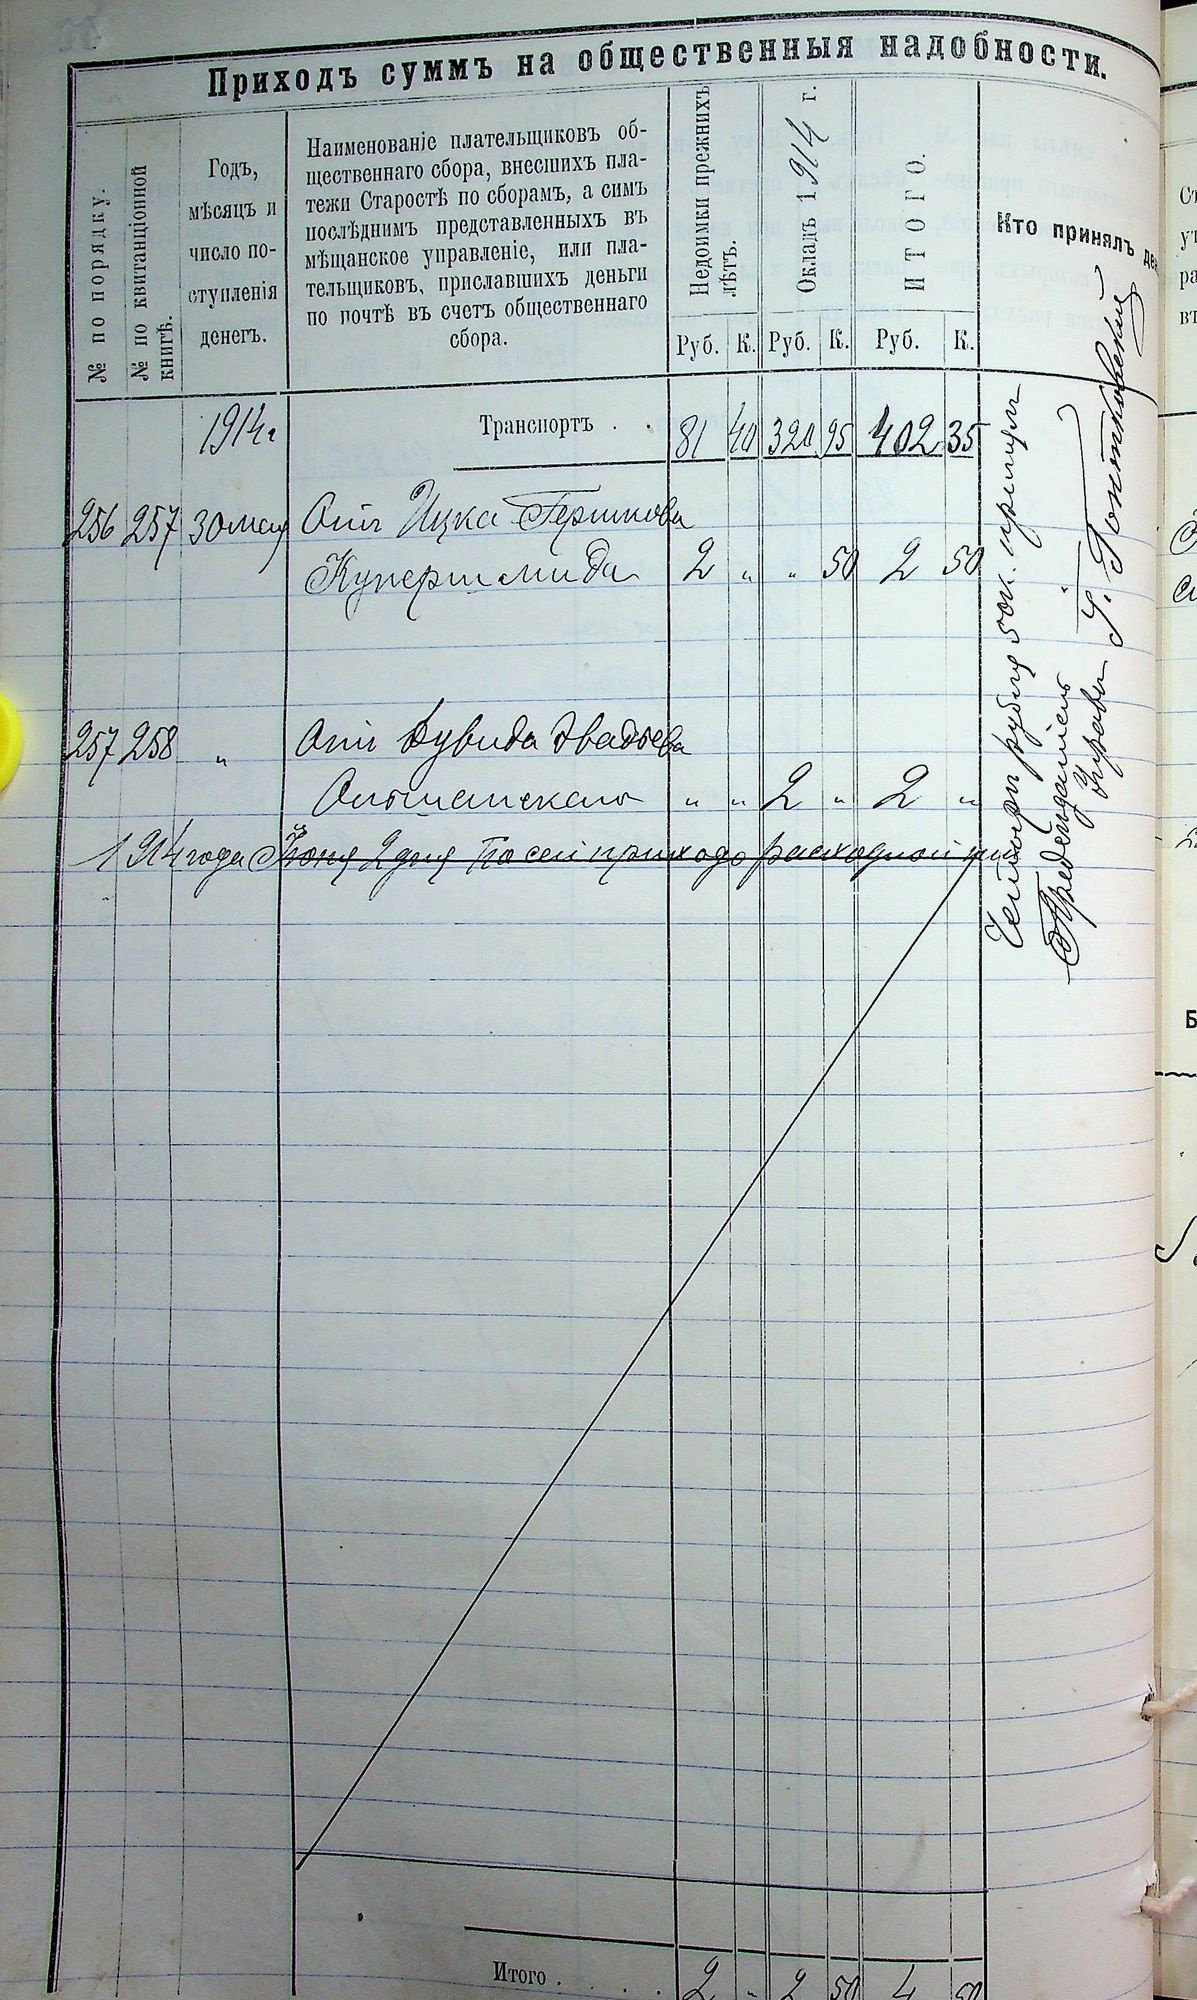 Приходъ суммъ на общественныя надобности.
№ по порядку.
№ по квитанціонной
книгѣ.
Годъ,
мѣсяцъ и
число по-
ступленія
денегъ.
Наименованіе плательщиковъ об-
щественнаго сбора, внесшихъ пла-
тежи Старостѣ по сборамъ, а симъ
послѣднимъ представленныхъ въ
мѣщанское управленіе, или пла-
тельщиковъ, приславшихъ деньги
по почтѣ въ счетъ общественнаго
сбора.
Недоимки прежнихъ
лѣтъ.
Окладъ 1914 г.
ИТОГО.
Кто принялъ
Руб. К. Руб. К. Руб. К.
1914 г Транспортъ . . 81 40 320 95 402 35
256 257 30 мая Отъ Ицка Гершкова
Купершмида 2 „ „ 50 2 50
257 258 „ Отъ Дувида
Ольшанскаго „ „ 2 „ 2 „
1914 года Іюня 2 дня По сей приходо расходной
Четыре рубля 50 к. принялъ
Предсѣдатель
Управы
Итого . . . . 2 „ 2 50 4 50